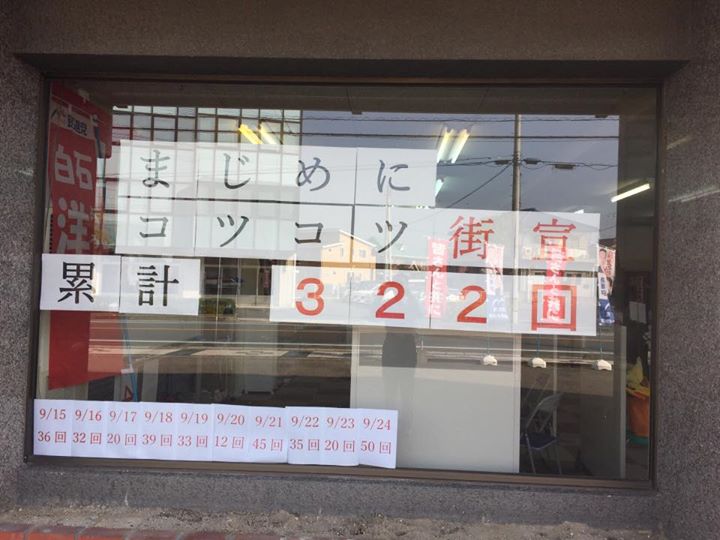 まじめに
コツコツ街宣
累計 322回
白石洋
9/15 9/16 9/17 9/18 9/19 9/20 9/21 9/22 9/23 9/24
36回 32回 20回 39回 33回 12回 45回 35回 20回 50回